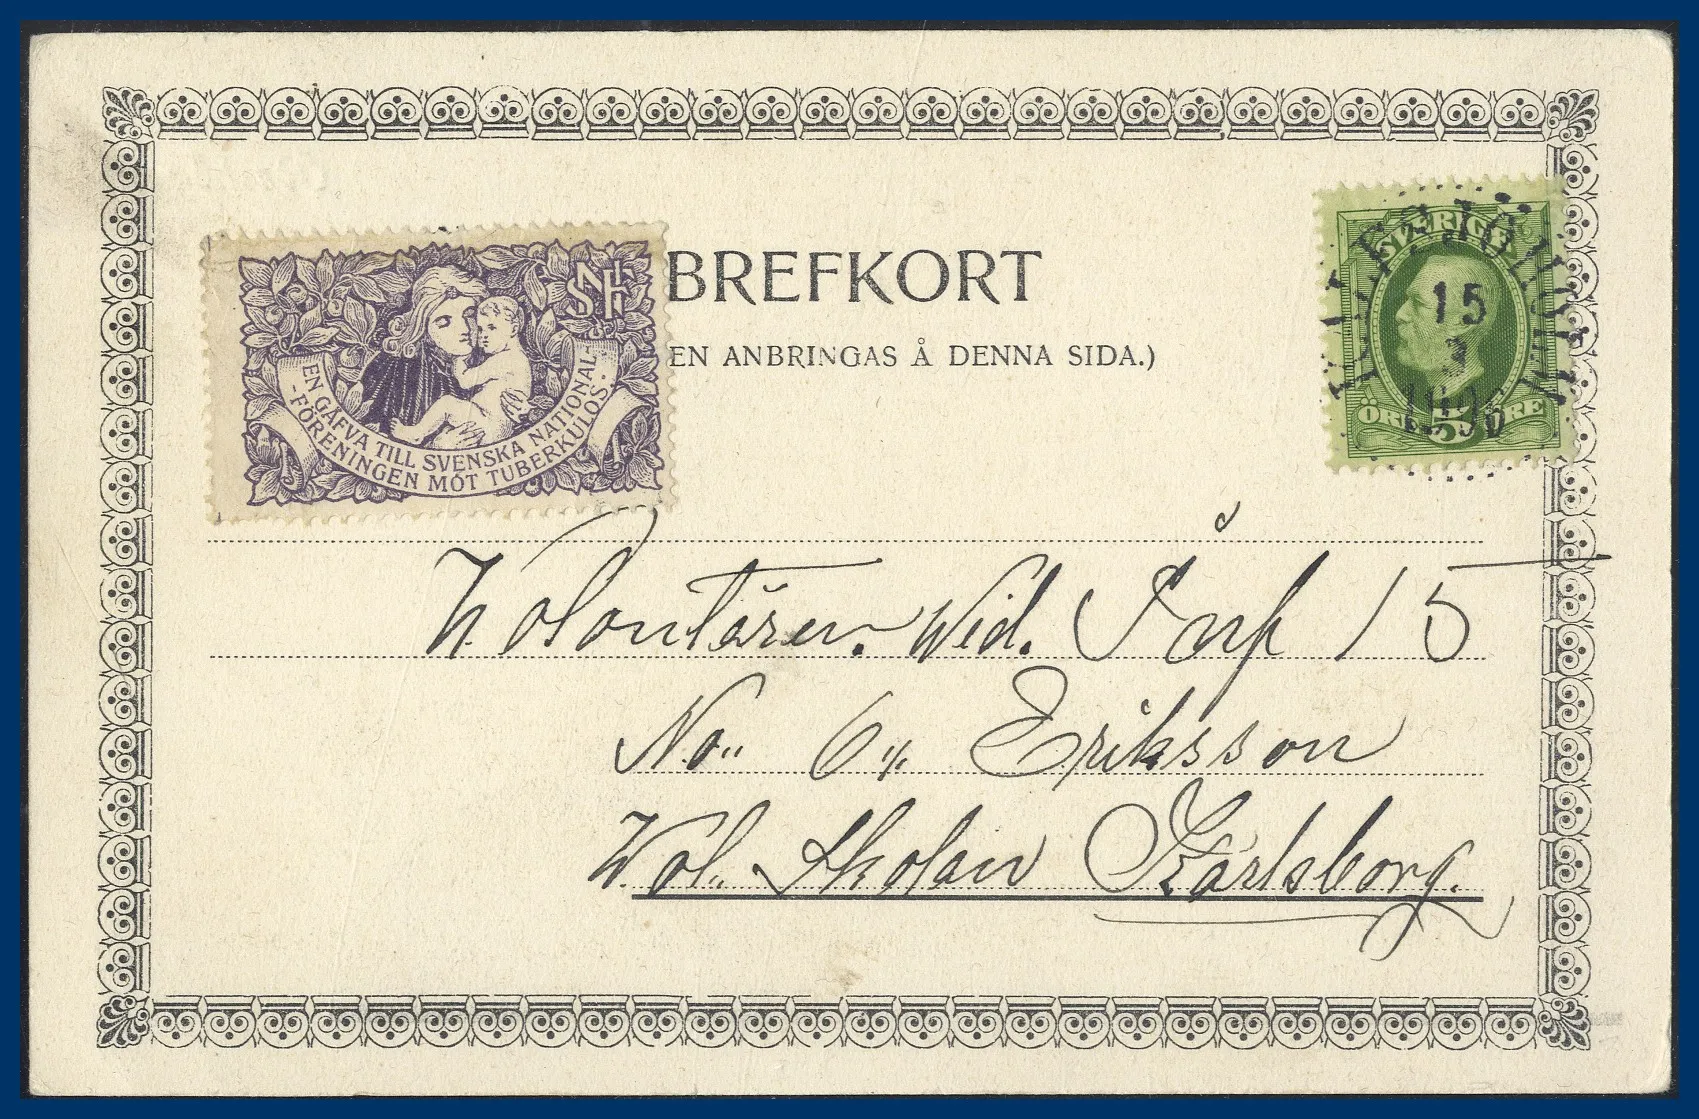 BREFKORT
EN ANBRINGAS Å DENNA SIDA.)
SNF
EN GÅFVA TILL SVENSKA NATIONAL-
-FÖRENINGEN MOT TUBERKULOS-
SVERIGE
15
3
ÖRE 5 ÖRE
Volontären. Wid. Inf 15
No,, 6 Eriksson
Wol. Skolan Karlsborg.